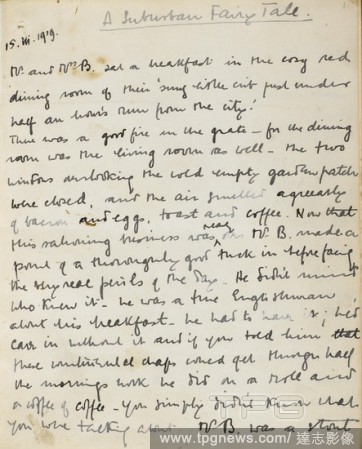 A Suburban Fairy Tale.
15. III. 1919.
Mr and Mrs B. sat at breakfast in the cosy red
dining room of their 'snug little crib just under
half an hour's run from the city.'
There was a good fire in the grate – for the dining
room was the living room as well – the two
windows overlooking the cold empty garden patch
were closed, and the air smelled agreeably
of bacon and eggs, toast and coffee. Now that
this rationing business was really over Mr B. made a
point of a thoroughly good tuck in before facing
the very real perils of the day. He didn't mind
who knew it – he was a true Englishman
about his breakfast – he had to have it; he'd
cave in without it and if you told him that
these continental chaps could get through half
the morning's work he did on a roll and
a coffee – you simply didn't know what
you were talking about. Mr B. was a stout
www.tpgnews.com / 達志影像